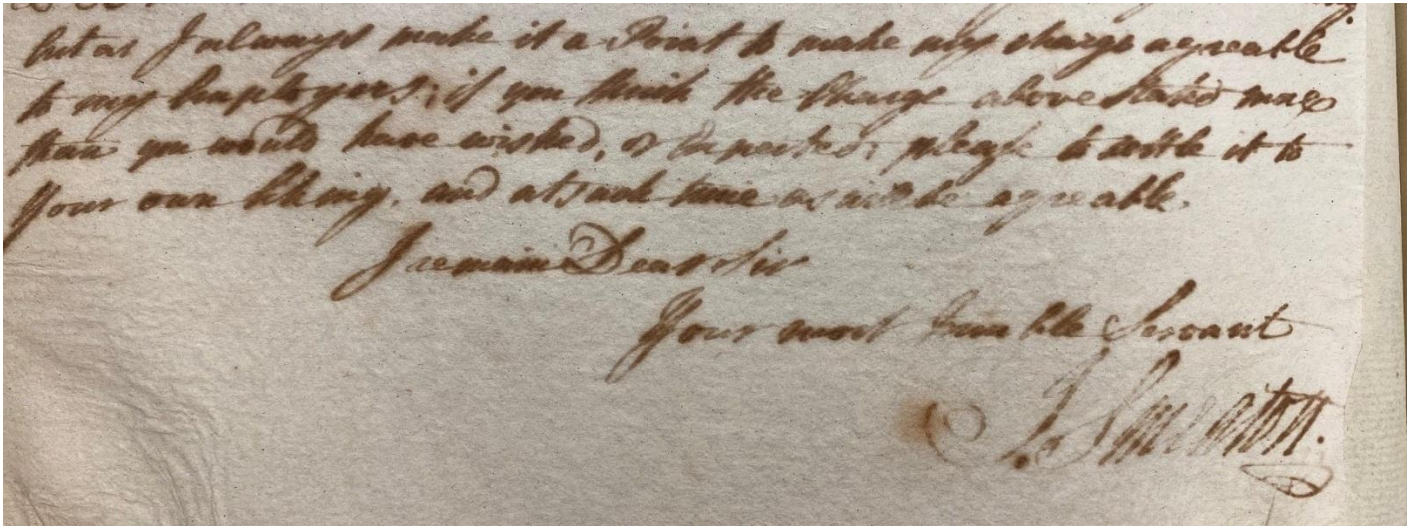 but as I always make it a Point to make my charge agreeable
to my Employers; if you think the Charge above stated more
than you would have wished, or Expected; please to settle it to
Your own liking, and at such time as will be agreeable.
I remain Dear Sir
Your most humble Servant
J. Smeaton.